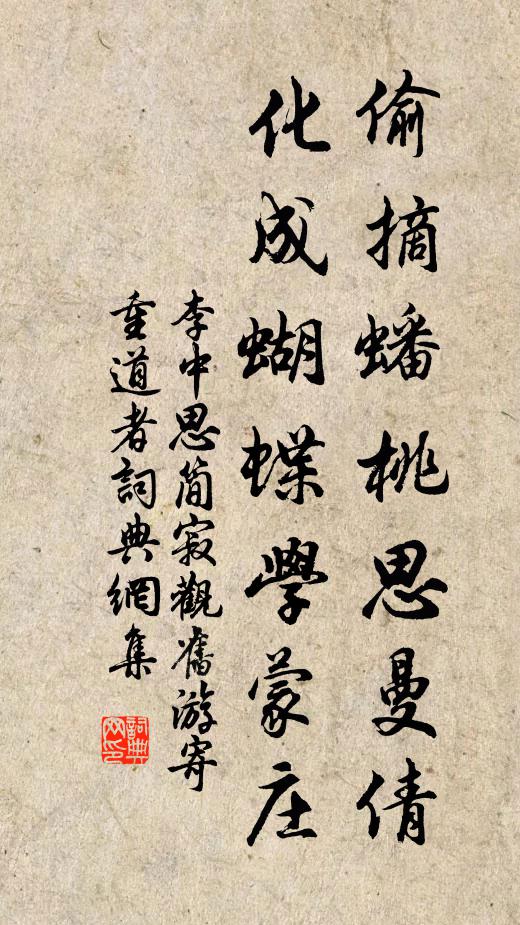 偷摘蟠桃思曼倩
化成蝴蝶學蒙庄
李中思簡寂觀舊游寄
重道者詞典網集
詞典
网印